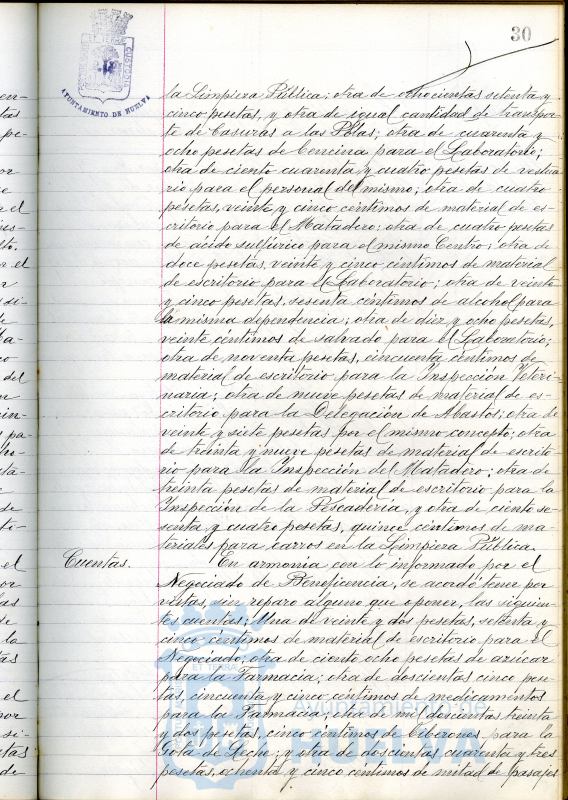 30
AYUNTAMIENTO DE HUELVA
la Limpieza Pública; otra de ochocientas setenta y
cinco pesetas, y otra de igual cantidad de transpor-
te de basuras a las Islas; otra de cuarenta y
ocho pesetas de bencina para el Laboratorio;
otra de ciento cuarenta y cuatro pesetas de vestua-
rio para el personal del mismo; otra de cuatro
pesetas, veinte y cinco céntimos de material de es-
critorio para el Matadero; otra de cuatro pesetas
de ácido sulfúrico para el mismo Centro; otra de
doce pesetas, veinte y cinco céntimos de material
de escritorio para el Laboratorio; otra de veinte
y cinco pesetas, sesenta céntimos de alcohol para
la misma dependencia; otra de diez y ocho pesetas,
veinte céntimos de salvado para el Laboratorio;
otra de noventa pesetas, cincuenta céntimos de
material de escritorio para la Inspección Veteri-
naria; otra de nueve pesetas de material de es-
critorio para la Delegación de Abastos; otra de
veinte y siete pesetas por el mismo concepto; otra
de treinta y nueve pesetas de material de escrito-
rio para la Inspección del Matadero; otra de
treinta pesetas de material de escritorio para la
Inspección de la Pescadería, y otra de ciento se-
senta y cuatro pesetas, quince céntimos de ma-
teriales para carros en la Limpieza Pública.
Cuentas.
En armonía con lo informado por el
Negociado de Beneficencia, se acordó tener por
vistas, sin reparo alguno que oponer, las siguien-
tes cuentas: Una de veinte y dos pesetas, setenta y
cinco céntimos de material de escritorio para el
Negociado; otra de ciento ocho pesetas de azúcar
para la Farmacia; otra de doscientas cinco pese-
tas, cincuenta y cinco céntimos de medicamentos
para la Farmacia; otra de mil doscientas treinta
y dos pesetas, cinco céntimos de biberones para la
Gota de Leche; y otra de doscientas cuarenta y tres
pesetas, ochenta y cinco céntimos de mitad de pasajes
Ayuntamiento de
HUELVA